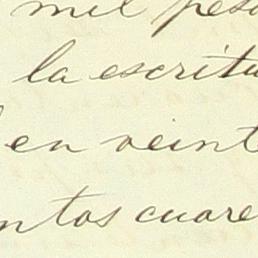 mil peso
la escritu
en veint
ntos cuare